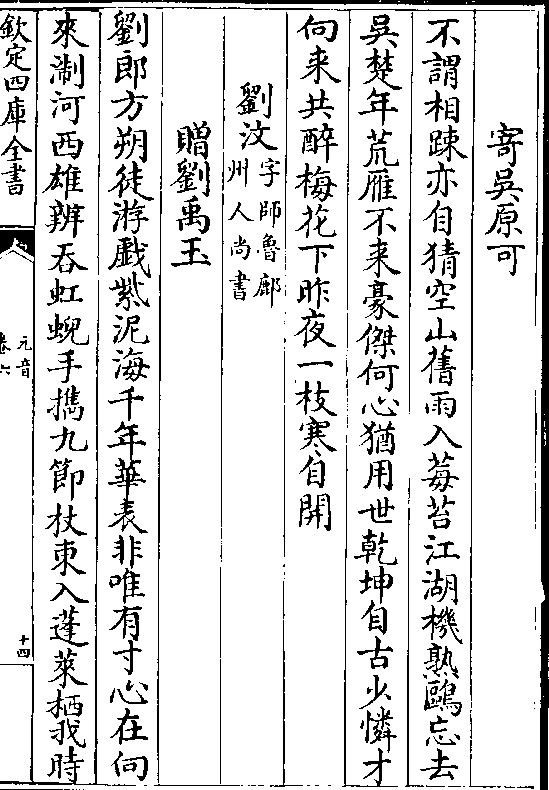 寄吳原可
不謂相踈亦自猜空山舊雨入莓苔江湖機熟鷗忘去
吳楚年荒雁不来豪傑何心猶用世乾坤自古少憐才
向来共醉梅花下昨夜一枝寒自開
劉汶字師魯鄜
州人尚書
贈劉禹玉
劉郎方朔徒游戲紫泥海千年華表非唯有寸心在向
來淛河西雄辨吞虹蜺手擕九節杖東入蓬萊栖我時
欽定四庫全書
元音
卷六
十四